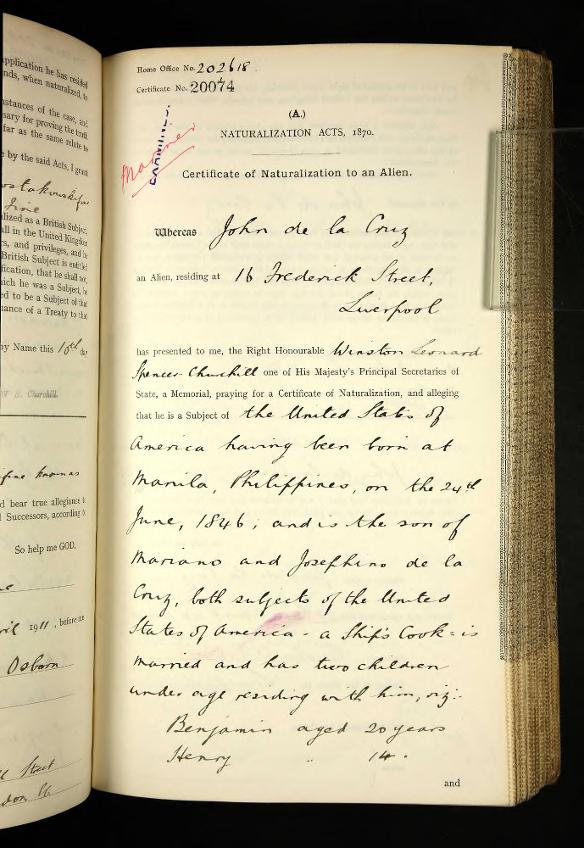 Home Office No. 202618.
Certificate No. 20074
(A.)
NATURALIZATION ACTS, 1870.
EXAMINED.
Mariner
Certificate of Naturalization to an Alien.
Whereas John de la Cruz
an Alien, residing at 16 Frederick Street,
Liverpool
has presented to me, the Right Honourable Winston Leonard
Spencer-Churchill one of His Majesty's Principal Secretaries of
State, a Memorial, praying for a Certificate of Naturalization, and alleging
that he is a Subject of the United States of
America having been born at
Manila, Philippines, on the 24th
June, 1846; and is the son of
Mariano and Josephino de la
Cruz, both subjects of the United
States of America - a Ship's Cook - is
married and has two children
under age residing with him, viz:-
Benjamin aged 20 years
Henry " 14 "
and
application he has resided
nds, when naturalized, to
nstances of the case, and
sary for proving the truth
far as the same relate to
e by the said Acts, I grant
alized as a British Subject,
all in the United Kingdom
rs, and privileges, and be
British Subject is entitled
fication, that he shall not,
hich he was a Subject, be
ed to be a Subject of that
uance of a Treaty to that
my Name this 10th day
W. S. Churchill.
fine known as
d bear true allegiance to
l Successors, according to
So help me GOD.
ril 1911, before me
Osborn
Street